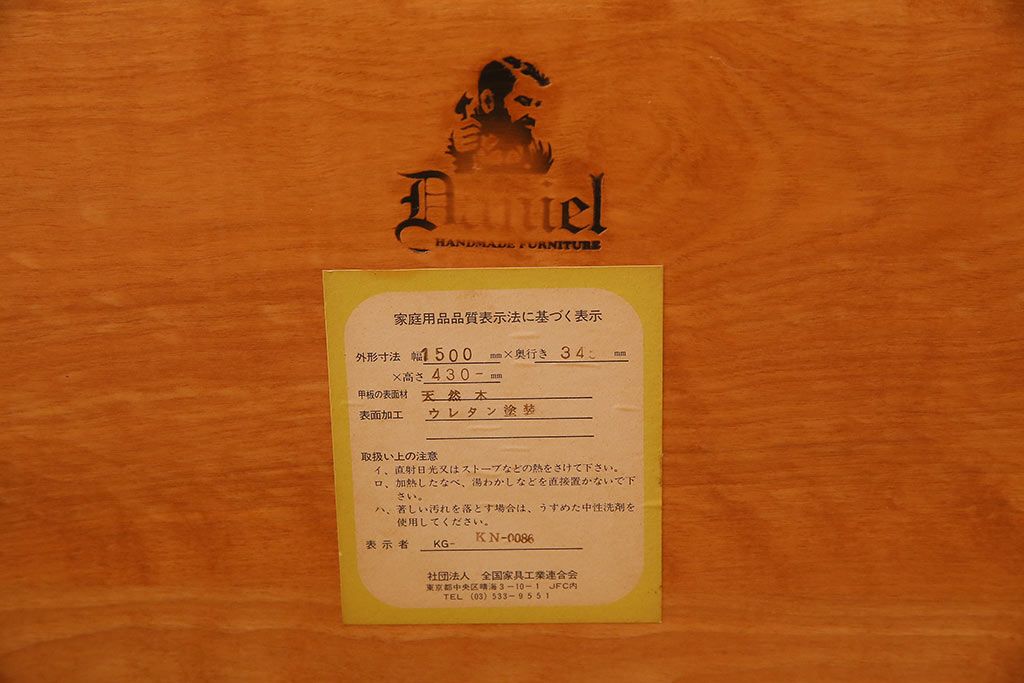 Daniel
HANDMADE FURNITURE
家庭用品品質表示法に基づく表示
外形寸法 幅1500 mm×奥行き 34 mm
×高さ430- mm
甲板の表面材 天然木
表面加工 ウレタン塗装
取扱い上の注意
イ、直射日光又はストーブなどの熱をさけて下さい。
ロ、加熱したなべ、湯わかしなどを直接置かないで下
さい。
ハ、著しい汚れを落とす場合は、うすめた中性洗剤を
使用してください。
表示者 KG- KN-0086
社団法人 全国家具工業連合会
東京都中央区晴海3-10-1 JFC内
TEL (03) 533-9551